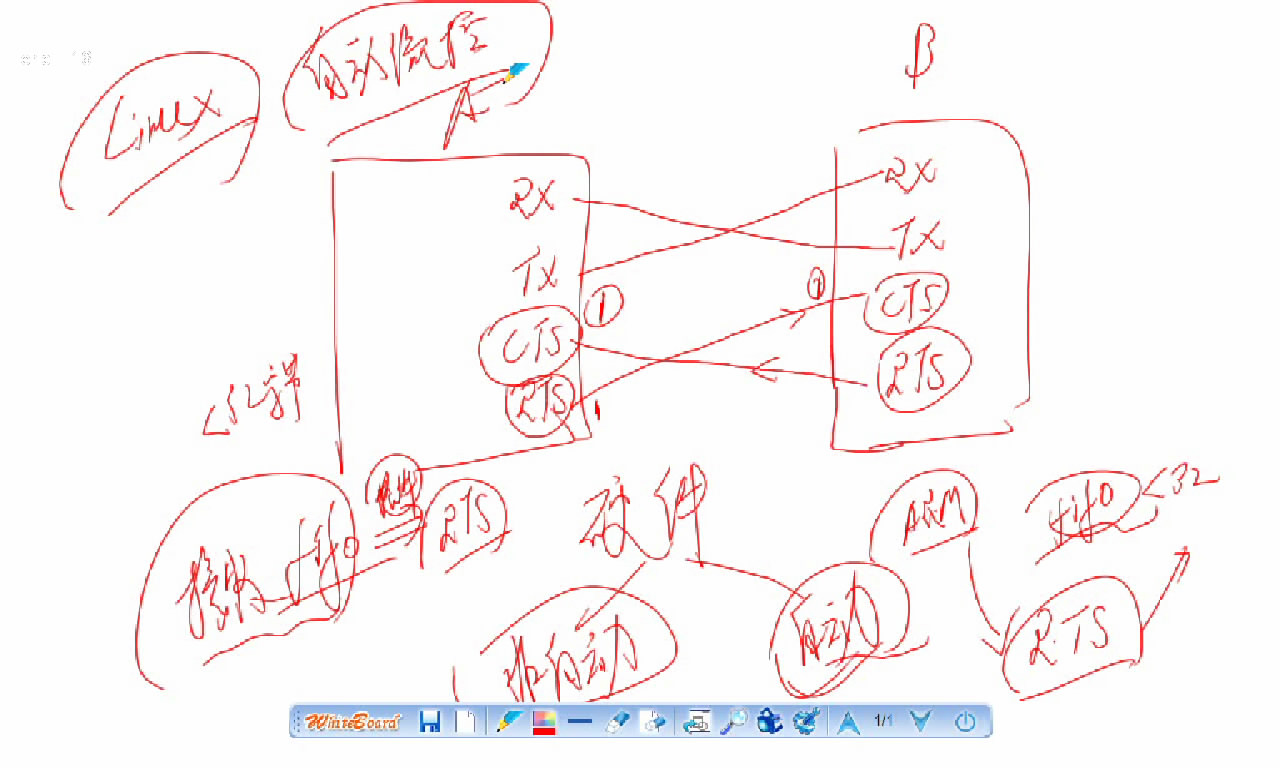 Linux
自动流控
A
B
RX
TX
CTS
RTS
①
RX
TX
CTS
RTS
①
<32字节
接收fifo
RTS
硬件
非自动
自动
ARM
fifo <32
RTS
WhiteBoard
1/1